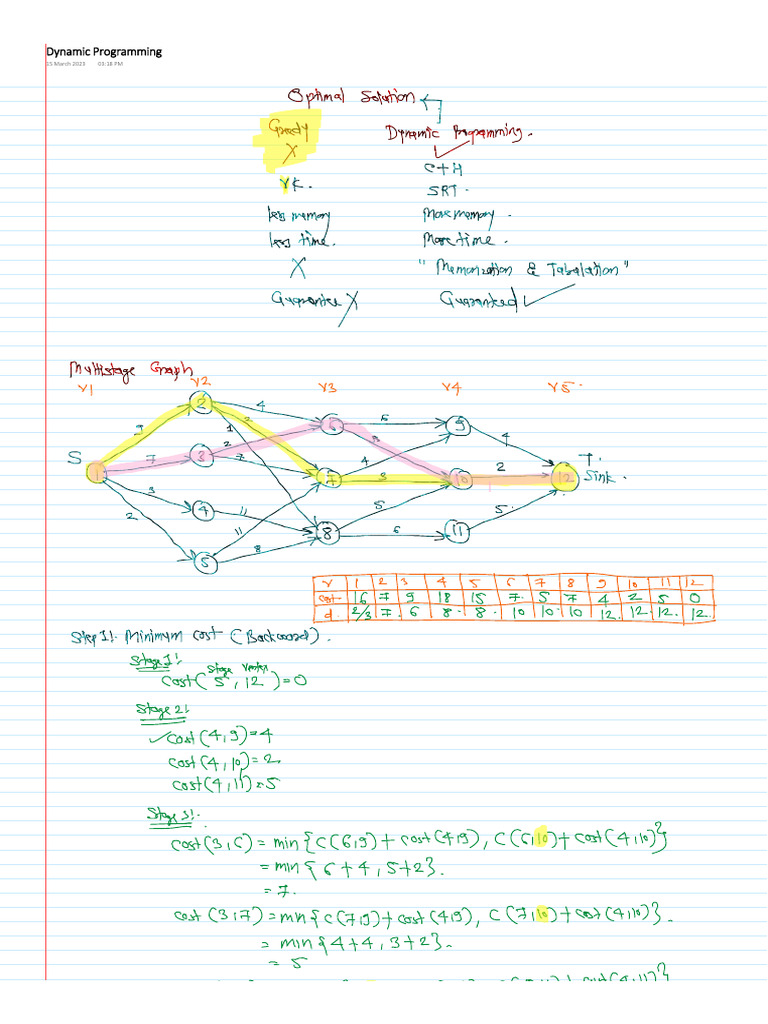 Dynamic Programming
15 March 2023 03:18 PM
Optimal Solution
Greedy Dynamic Programming.
X
C+H
rk. SRT.
less memory More memory.
less time. More time.
X "Memorization & Tabulation"
Guarantee X Guaranteed ✓
Multistage Graph
V1 V2 V3 V4 V5.
2 4 6 6 9
9 2 1 4
S 7 3 2 5 T.
1 7 4 2 12 Sink.
7 3 10
3 4 11 5
2 11 8 6 11 5.
5 8
V 1 2 3 4 5 6 7 8 9 10 11 12
cost 16 7 9 18 15 7 5 7 4 2 5 0
d. 2/3 7. 6 8. 8. 10 10. 10 12. 12. 12. 12.
Step 1!. Minimum cost (Backward).
Stage 1!
Stage vertex
cost( 5, 12 ) = 0
Stage 2!
✓ cost(4,9) = 4
cost(4,10) = 2.
cost(4,11) = 5
Stage 3!.
cost(3,6) = min{C(6,9) + cost(4,9), C(6,10) + cost(4,10)}
= min{6+4, 5+2}.
= 7.
cost(3,7) = min{C(7,9) + cost(4,9), C(7,10) + cost(4,10)}.
= min{4+4, 3+2}.
= 5